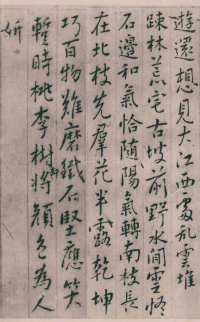 遊還想見大江西處亂雲堆
疎林荒宅古坡前野水閒雲恠
石邊和氣恰隨陽氣轉南枝長
在北枝先群花半露乾坤
巧百物難磨鐵石堅應笑
暫時桃李樹將顏色為人
妍